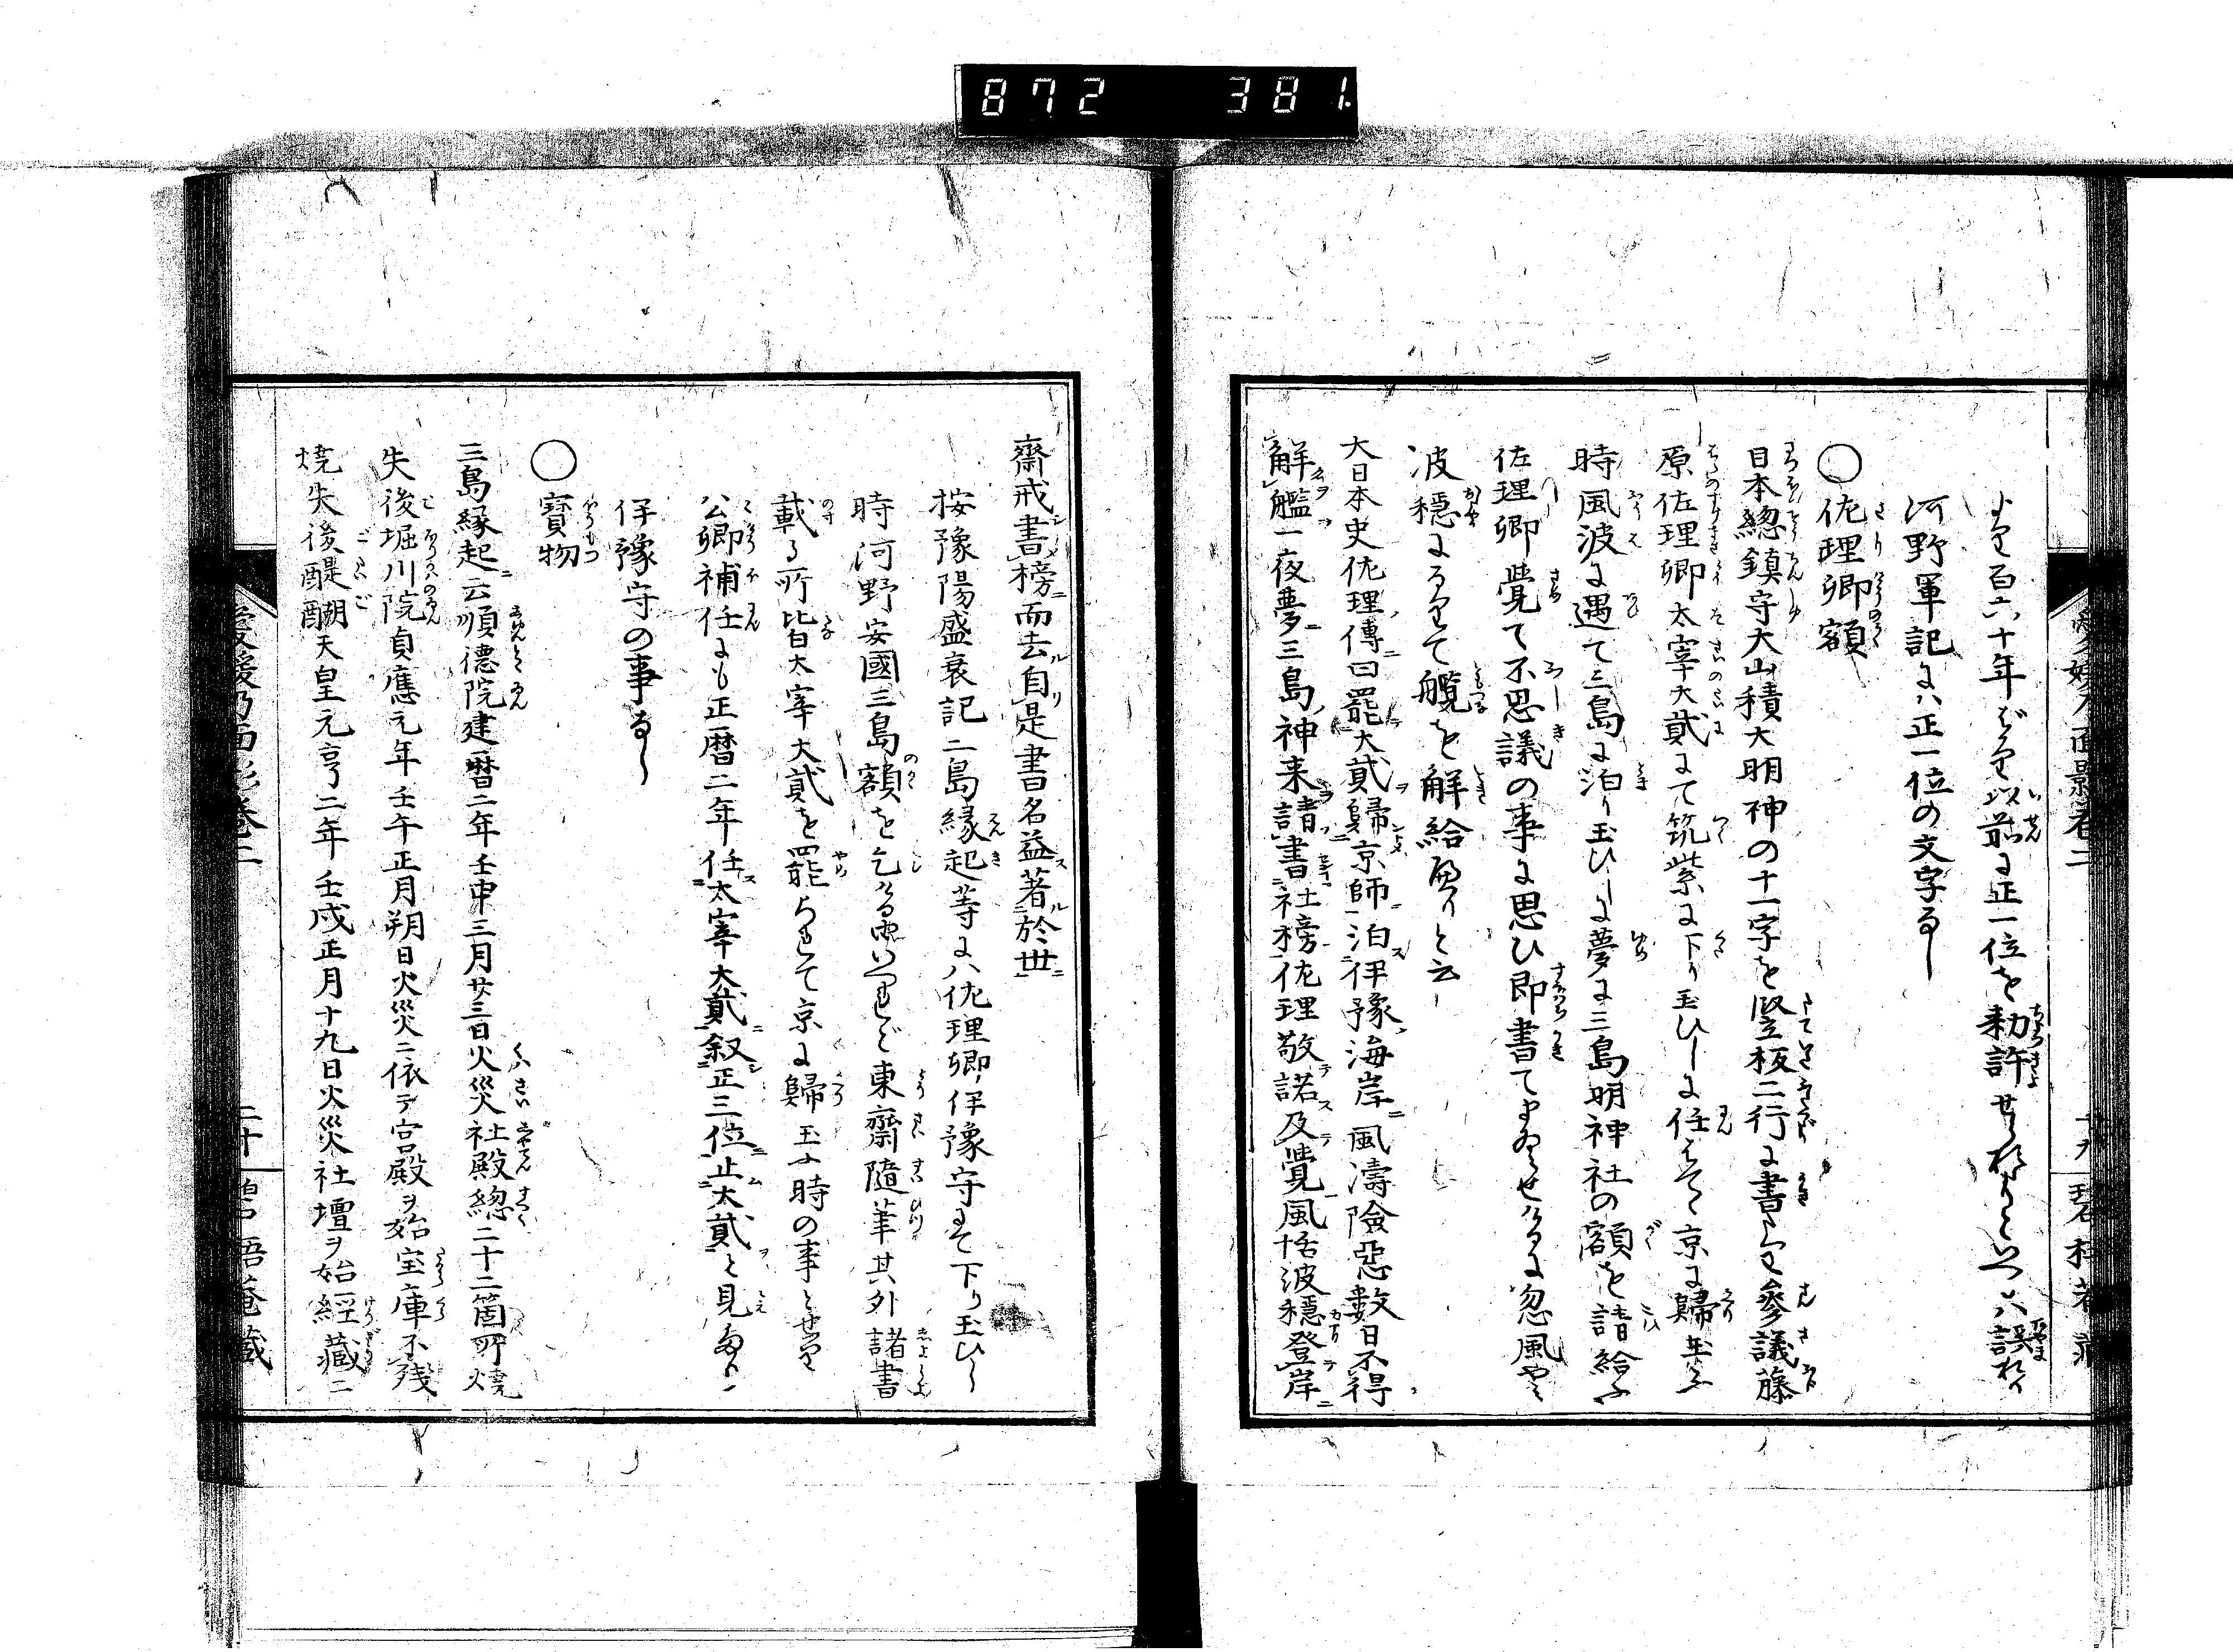 872 381.
愛媛乃面影巻二
より百六十年ばかり以前に正一位を勅許せられたりといへるハ誤なり
河野軍記にハ正一位の文字なし
○佐理卿額
日本総鎮守大山積大明神の十一字を竪板二行に書たり参議藤
原佐理卿太宰大貳にて筑紫に下り玉ひしに任はてゝ京に歸玉ふ
時風波に遇て三島に泊り玉ひしに夢に三島明神社の額を請給ふ
佐理卿覚て不思議の事に思ひ即書てまゐらせけるに忽風やミ
波穏になりて艤を解給へりと云
大日本史佐理傳曰罷大貳歸京師泊伊豫海岸風濤險惡数日不得
解艦一夜夢三島神来請書社榜佐理敬諾及覺風恬波穏登岸
齋戒書榜而去自是書名益著於世
按豫陽盛衰記二島縁起等にハ佐理卿伊豫守にて下り玉ひし
時河野安國三島額を乞けるよしいへれど東齋隨筆其外諸書
載る所皆太宰大貳を罷られて京に歸玉ふ時の事とせり
公卿補任にも正暦二年任太宰大貳叙正三位止大貳と見ゆ
伊豫守の事なし
○寳物
三島縁起ニ云順德院建暦二年壬申三月廿三日火災社殿總二十二箇所燒
失後堀川院貞應元年壬午正月朔日火災ニ依テ宮殿ヲ始宝庫不殘
燒失後醍醐天皇元亨二年壬戌正月十九日火災社壇ヲ始經藏ニ
愛媛乃面影巻二
二十
碧梧菴藏